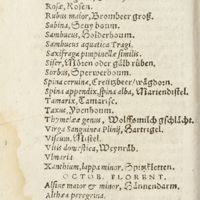 Rosæ, Rosen.
Rubus maior, Brombeer groß.
Sabina, Seuyboum.
Sambucus, Holderboum.
Sambucus aquatica Tragi.
Saxifragæ pimpinellæ similis.
Siser, Mören oder gälb rüben.
Sorbus, Sperwerboum.
Spina ceruina, Creutzbeer/wägdorn.
Spina appendix, spina alba, Mariendistel.
Tamarix, Tamarisc.
Taxus, Ybenboum.
Thymelææ genus, Wolffsmilch gschlächt.
Virga Sanguinea Plinij, Hartrigel.
Viscum, Mistel.
Vitis domestica, Weynräb.
Vlmaria
Xanthium, lappa minor, Spitzkletten.
OCTOB. FLORENT.
Alsine maior & minor, Hünnendarm.
Althæa peregrina.